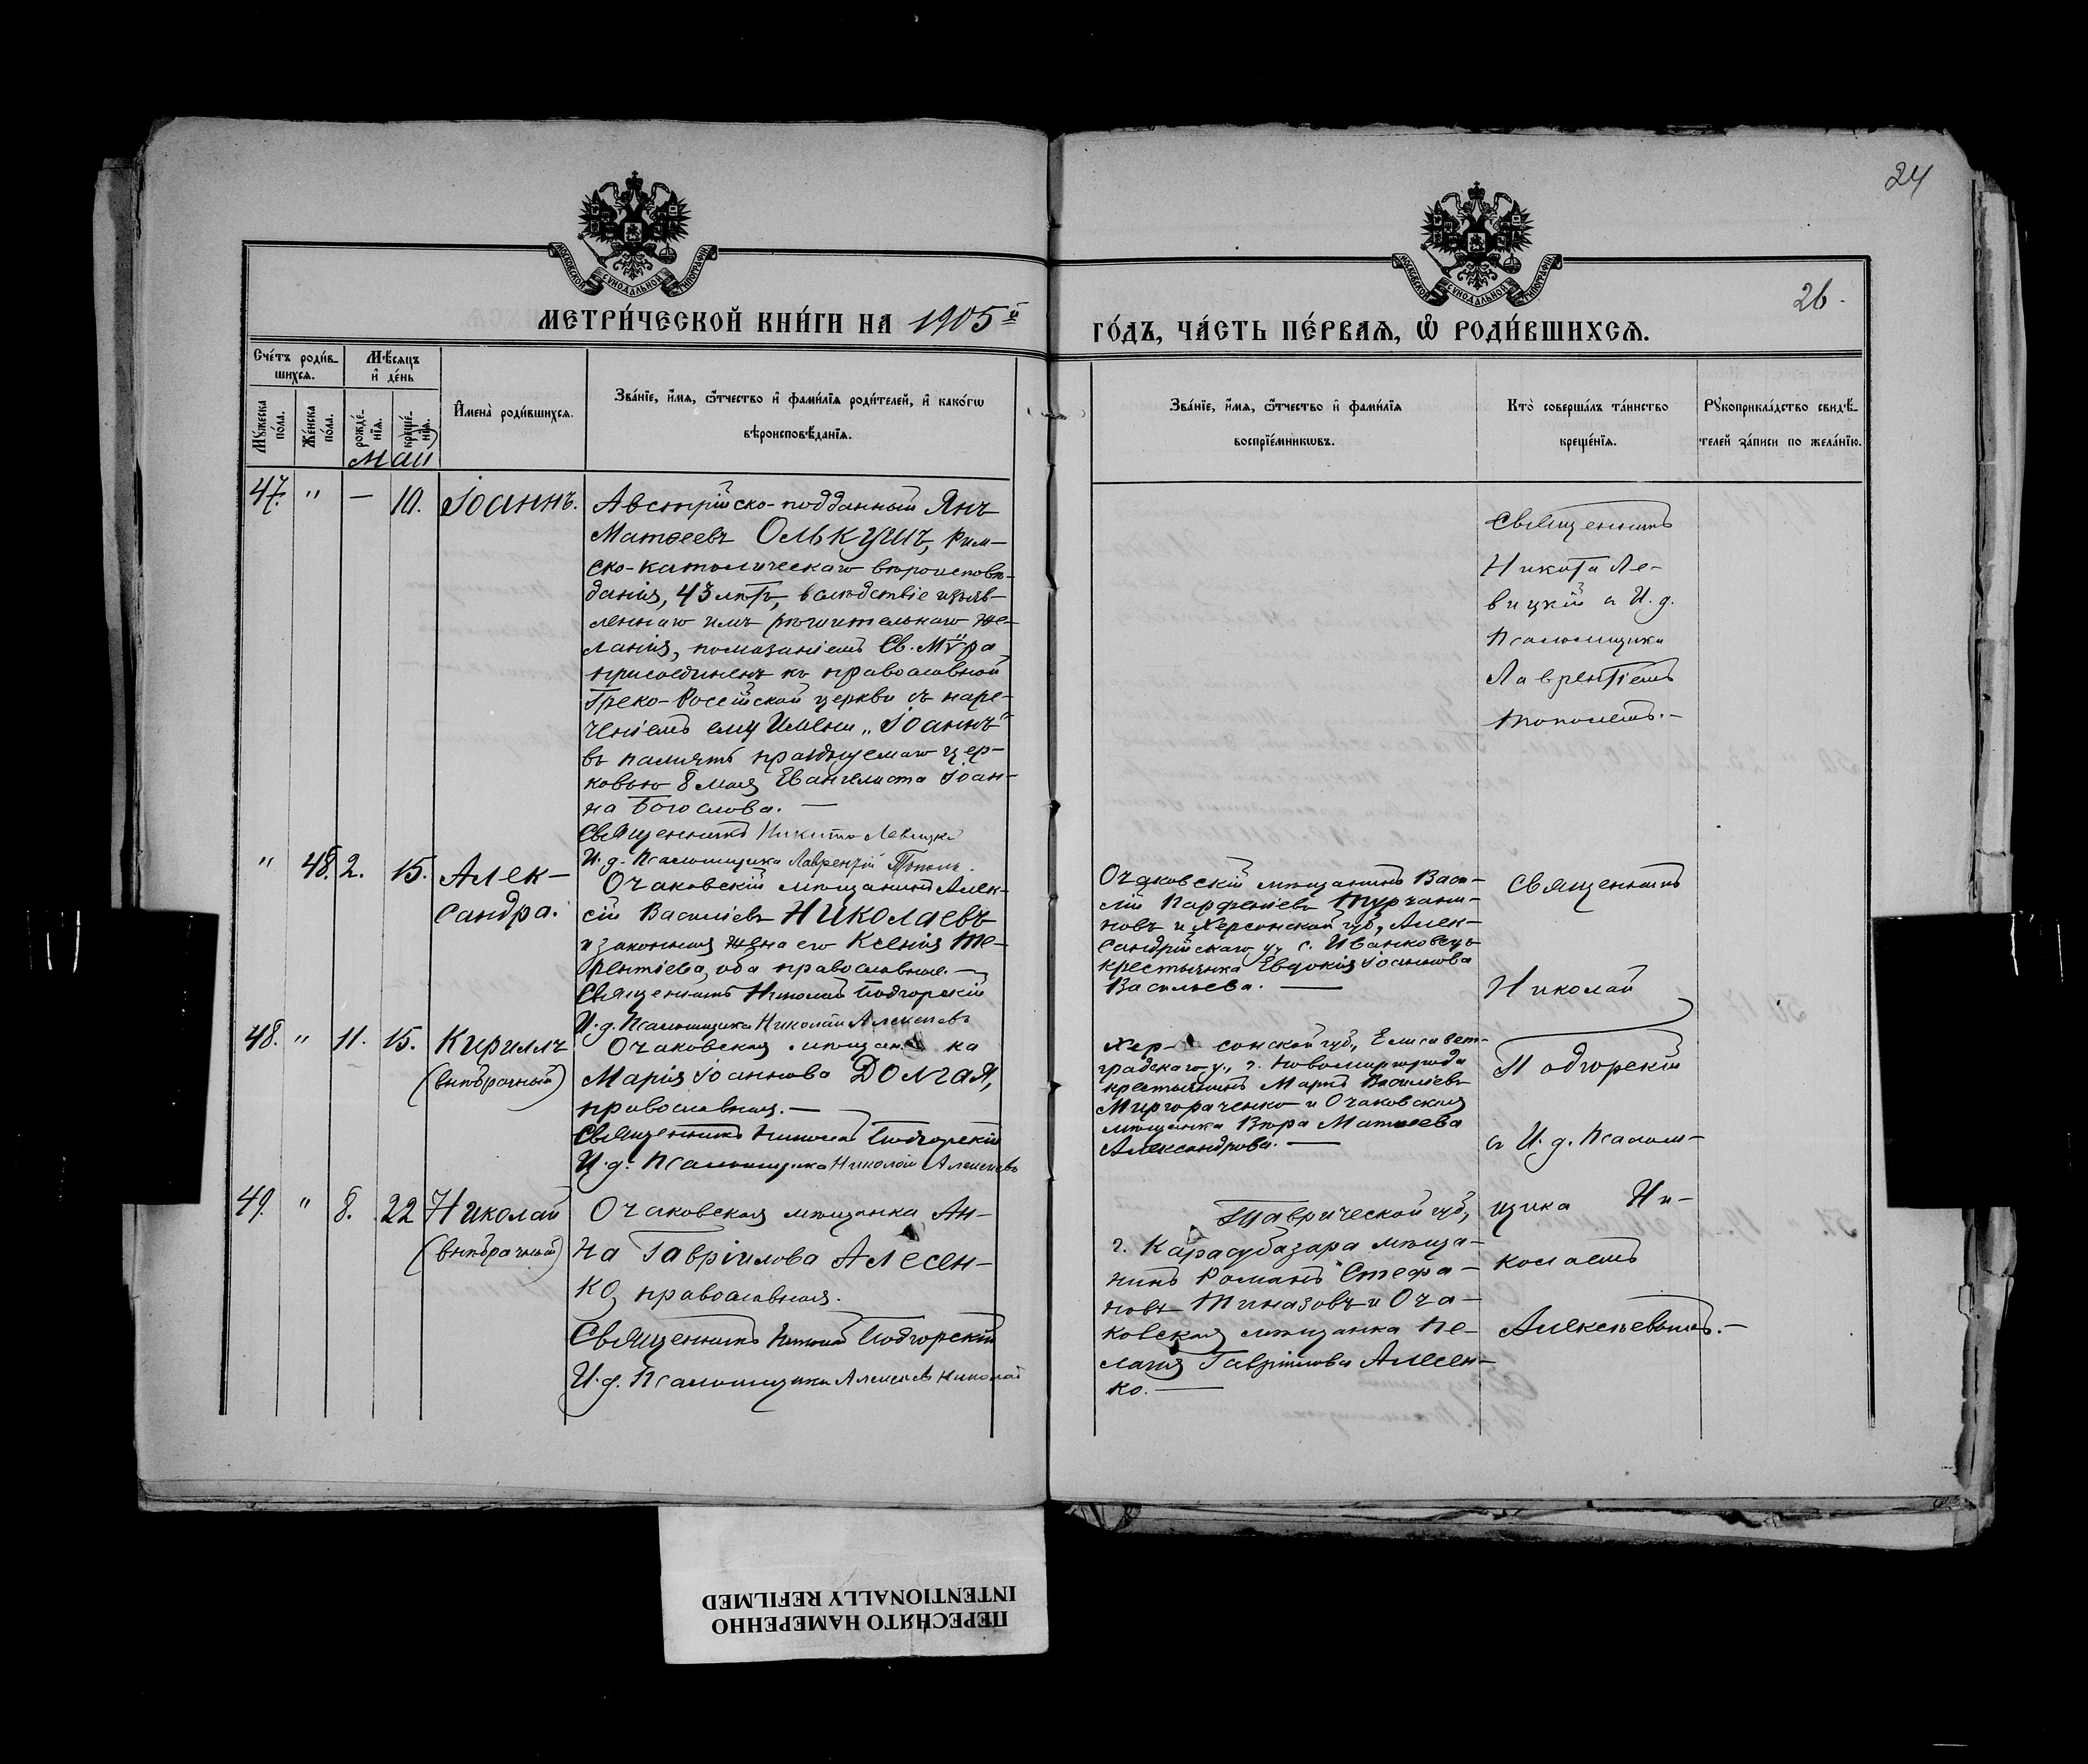 24
МОСКОВСКОЙ СѴНОДАЛЬНОЙ ТИПОГРАФІИ
МОСКОВСКОЙ СѴНОДАЛЬНОЙ ТИПОГРАФІИ
26.
МЕТРИ́ЧЕСКОЙ КНИ́ГИ НА 1905й
ГО́ДЪ, ЧА́СТЬ ПЕ́РВАѦ, Ѡ҆ РОДИ́ВШИХСѦ.
Сче́тъ роди́в-
шихсѧ.
Мѣ́сѧцъ
и҆ де́нь
Мꙋ́жеска
по́ла.
Же́нска
по́ла.
рожде́-
нїѧ.
креще́-
нїѧ.
И҆мена̀ роди́вшихсѧ.
Зва́нїе, и҆́мѧ, ѻ҆́тчество и҆ фами́лїѧ роди́телей, и҆ како́гѡ
вѣроисповѣ́данїѧ.
Зва́нїе, и҆́мѧ, ѻ҆́тчество и҆ фами́лїѧ
воспрїе́мникѡвъ.
Кто̀ соверша́лъ та́инство
креще́нїѧ.
Рꙋкоприкла́дство свидѣ́-
телей за́писи по жела́нїю.
Май
47. " — 10. Іоаннъ.
Австрійско-подданный Янъ
Матѳеевъ Олькушъ, Рим-
ско-католическаго вѣроисповѣ-
данія, 43 лѣтъ, вслѣдствіе изъяв-
леннаго имъ рѣшительнаго же-
ланія, помазаніемъ Св. Мѵра
присоединенъ къ православной
Греко-Россійской церкви съ наре-
ченіемъ ему Имени „Іоаннъ"
въ память празднуемаго цер-
ковью 8 мая Евангелиста Іоан-
на Богослова. —
Священникъ Никита Левицкій
И. д. Псаломщика Лаврентій Тополь.
Священникъ
Никита Ле-
вицкій съ И. д.
Псаломщика
Лаврентіемъ
Тополемъ. —
" 48. 2. 15. Алек-
сандра.
Очаковскій мѣщанинъ Алек-
сій Василіевъ Николаевъ
и законная жена его Ксенія Те-
рентіева, оба православные. —
Священникъ Николай Подгорскій
И. д. Псаломщика Николай Алексѣевъ
Очаковскій мѣщанинъ Васи-
лій Парфеніевъ Турчани-
новъ и Херсонской губ., Алек-
сандрійскаго у. с. Иванковецъ
крестьянка Евдокія Іоаннова
Васильева. —
Священникъ
Николай
48. " 11. 15. Кириллъ
(внѣбрачный)
Очаковская мѣщанка
Марія Іоаннова Долгая,
православная. —
Священникъ Николай Подгорскій
И. д. Псаломщика Николай Алексѣевъ
Хер-сонской губ., Елисавет-
градскаго у., г. Новомиргорода
крестьянинъ Маркъ Василіевъ
Миргораченко и Очаковская
мѣщанка Вѣра Матвеева
Александрова. —
Подгорскій
съ И. д. Псалом-
49. " 8. 22 Николай
(внѣбрачный)
Очаковская мѣщанка Ан-
на Гавріилова Алесен-
ко, православная.
Священникъ Николай Подгорскій
И. д. Псаломщика Алексѣевъ Николай
Таврической губ.,
г. Карасубазара мѣща-
нинъ Романъ Стефа-
новъ Тиназовъ и Оча-
ковская мѣщанка Пе-
лагія Гавріилова Алесен-
ко. —
щика Ни-
колаемъ
Алексѣевымъ. —
ПЕРЕСНЯТО НАМЕРЕННО
INTENTIONALLY REFILMED